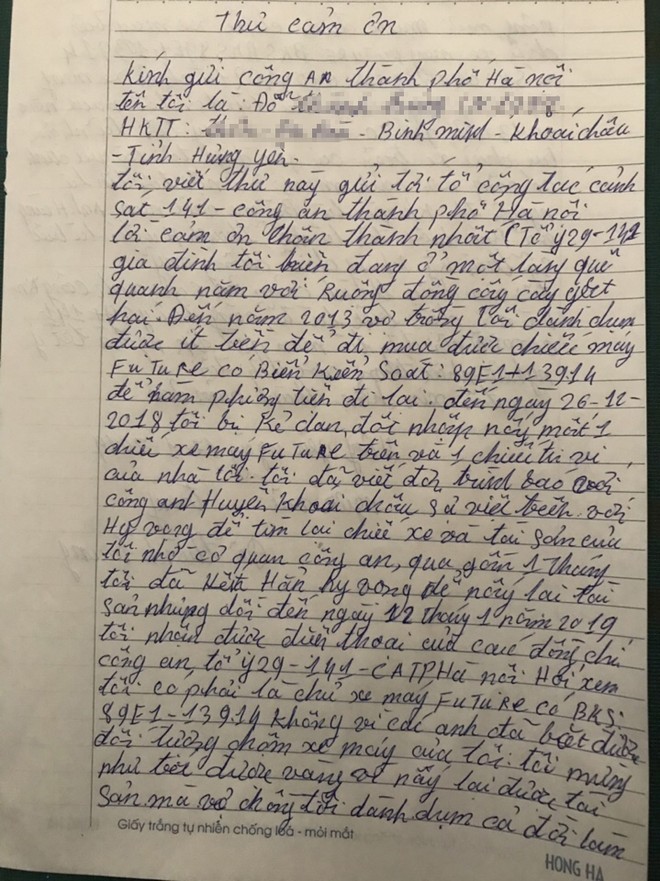 Thư cảm ơn
kính gửi công an thành phố Hà nội
tên tôi là: Đỗ
HKTT: - Bình minh - Khoái châu
- Tỉnh Hưng yên.
tôi viết thư này gửi tới tổ công tác cảnh
sát 141 - công an thành phố Hà nội
lời cảm ơn chân thành nhất (Tổ Y29-141
gia đình tôi hiện đang ở một làng quê
quanh năm với Ruộng đồng cấy cày gặt
hái. Đến năm 2013 vợ trồng tôi dành dụm
được ít tiền để đi mua được chiếc máy
FuTuRe có Biển Kiển Soát: 89E1+139.14
để nàm phương tiền đi lại, đến ngày 26-12-
2018 tôi bị Kẻ dan đột nhập nấy mất 1
chiếc xe máy FuTuRE trên và 1 chiếc ti vi
của nhà tôi. tôi đã viết đơn trình báo với
công an Huyện Khoái châu sự viết trên với
Hy vọng để tìm lại chiếc xe và tài sản của
tôi nhờ cơ quan công an, qua gồm 1 tháng
tôi đã Hết Hẳn hy vọng để nấy lại tài
sản nhưng dồi đến ngày 12 tháng 1 năm 2019
tôi nhận được điên thoại của các đồng chí
công an, tổ Y29-141-CATP, Hà nôi Hỏi xem
tôi có phải là chủ xe máy FuTuRe có BKS:
89E1-139.14 không vì các anh đã bắt được
đối tượng chộm xe máy của tôi. tôi mừng
như bắt được vàng vì nấy lại được tài
sản mà vợ chồng tôi dành dụm cả đời làm
Giấy trắng tự nhiên chống loá - mỏi mắt
HONG HA